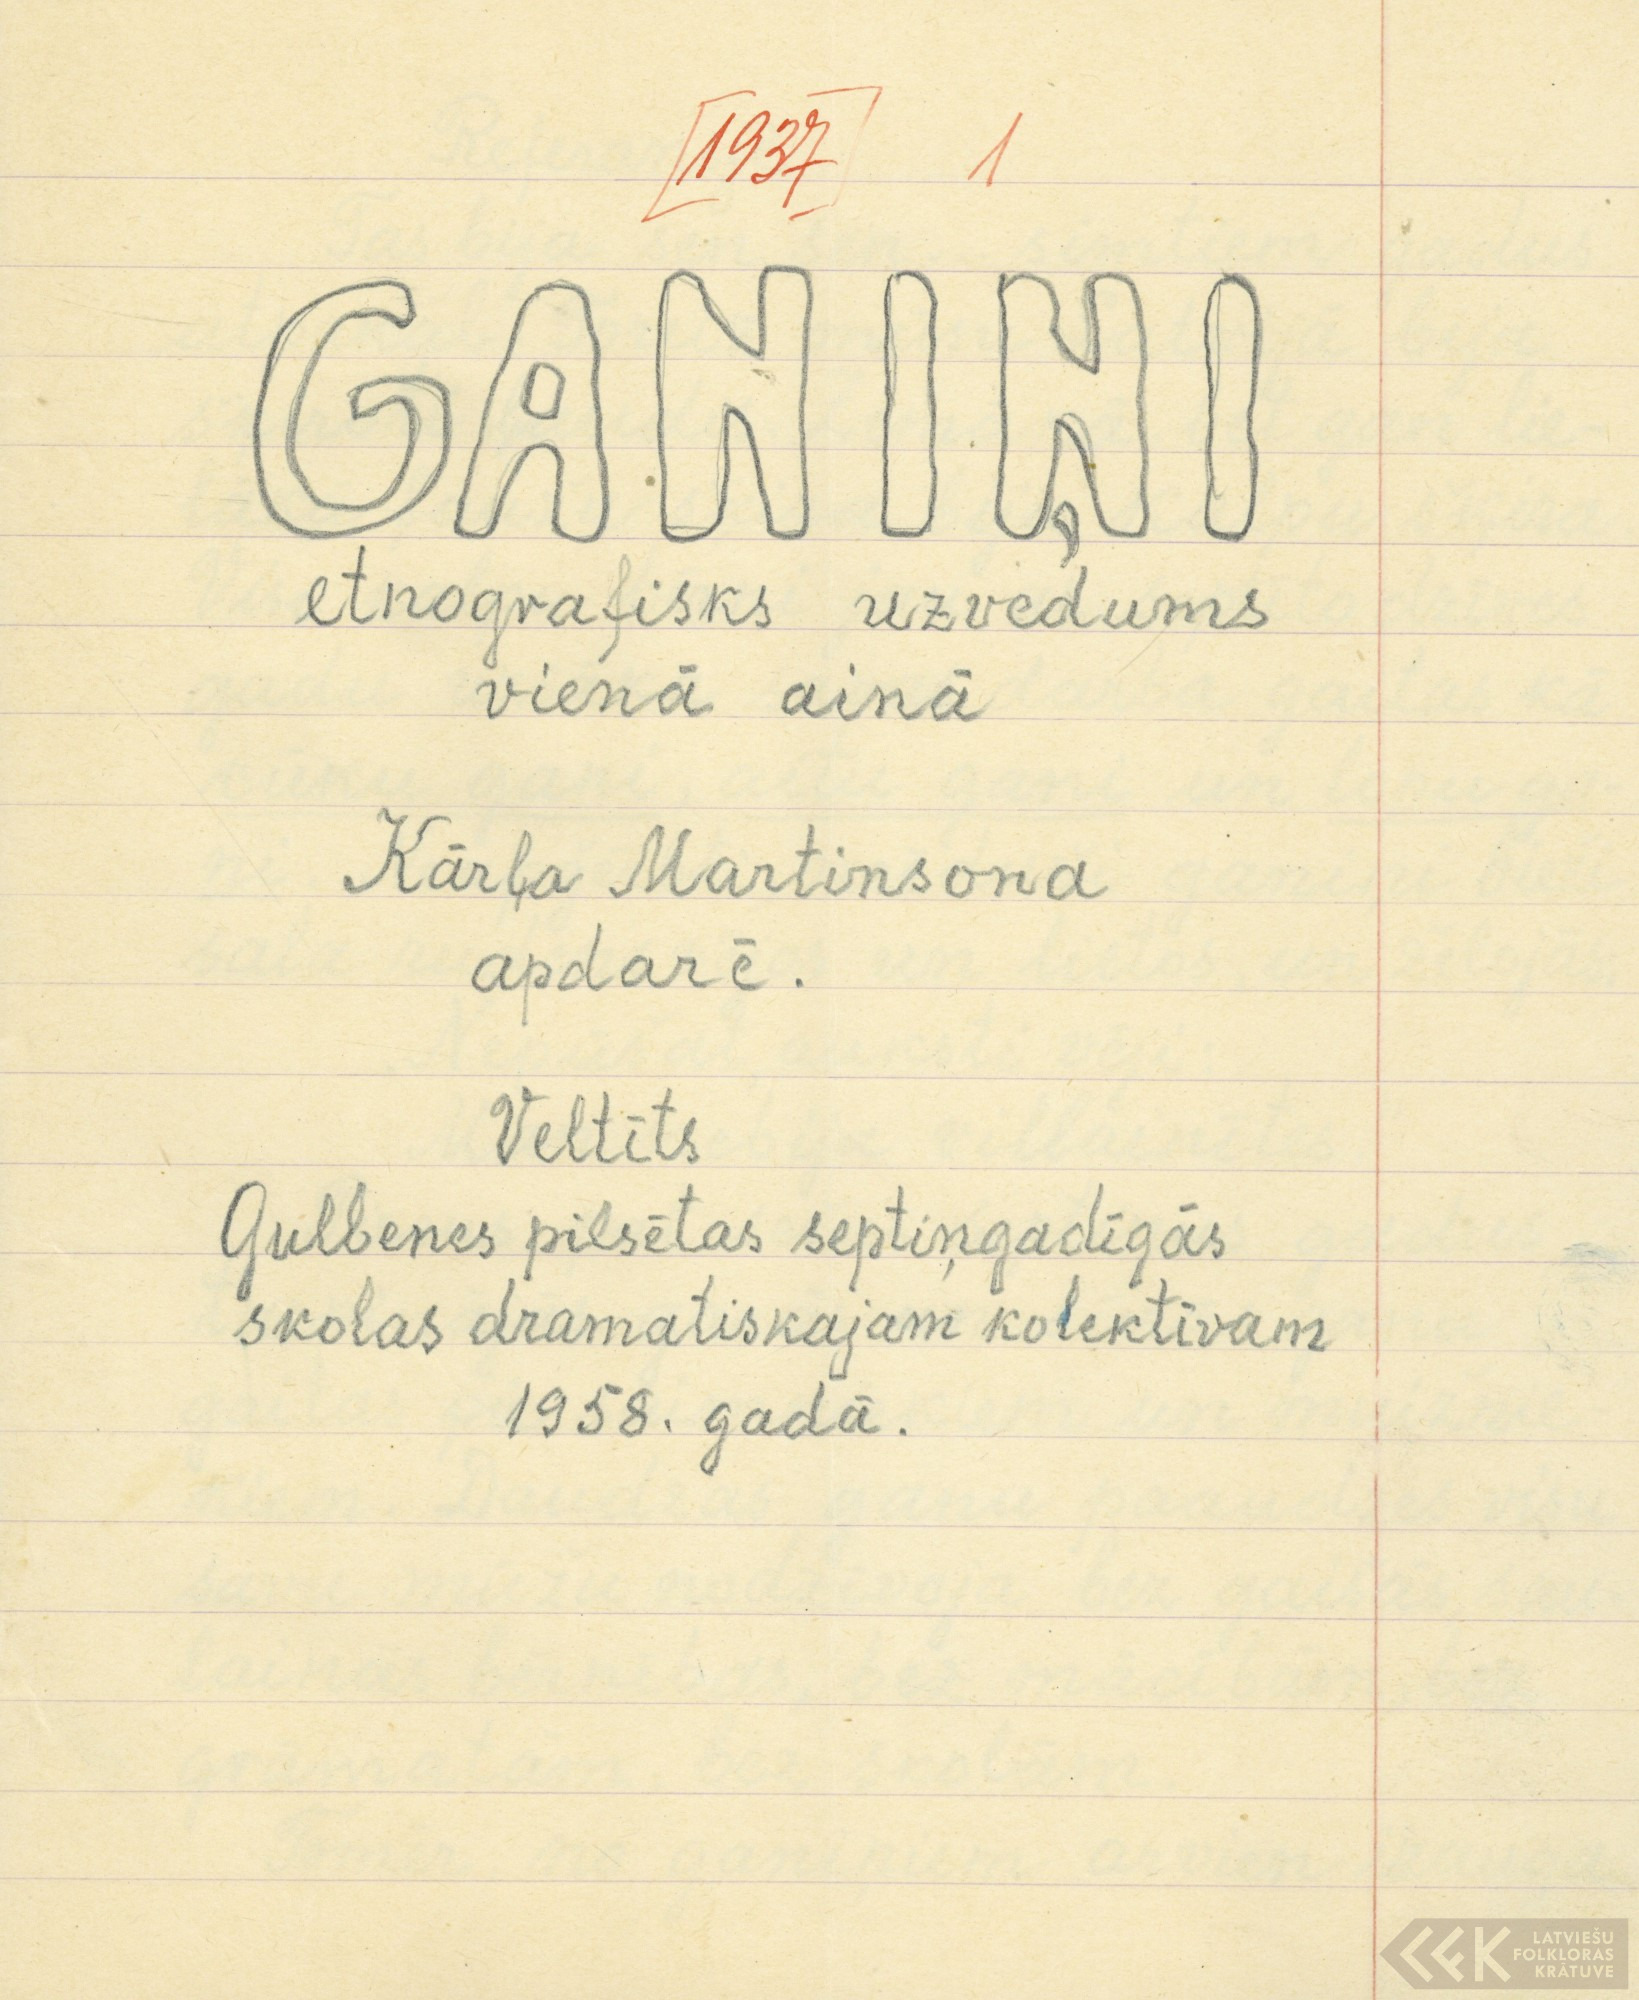 [1937] 1
GANIŅI
etnografisks uzvedums
vienā ainā
Kārļa Martinsona
apdarē.
Veltīts
Gulbenes pilsētas septiņgadīgās
skolas dramatiskajam kolektīvam
1958. gadā.
LFK LATVIEŠU
FOLKLORAS
KRĀTUVE